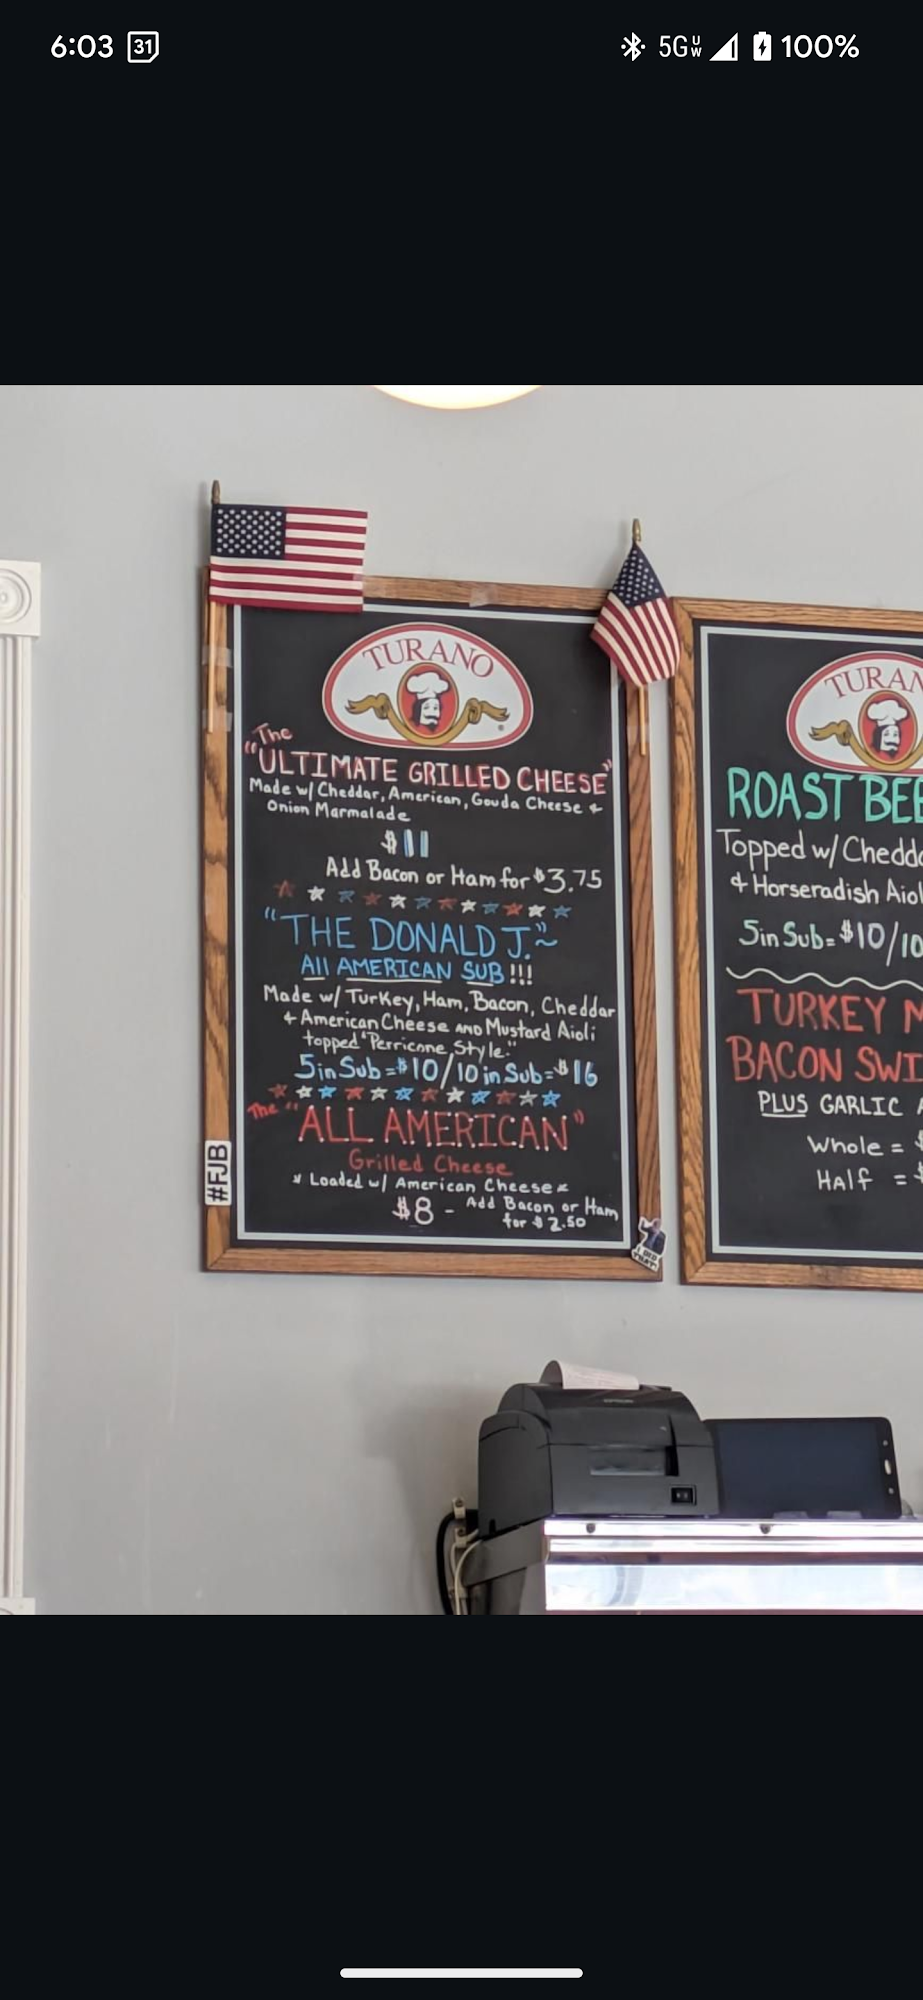 6:03 31 5G UW 100%
TURANO
The
"ULTIMATE GRILLED CHEESE"
Made w/ Cheddar, American, Gouda Cheese +
Onion Marmalade
$11
Add Bacon or Ham for $3.75
"THE DONALD J."~
All AMERICAN SUB!!!
Made w/ Turkey, Ham, Bacon, Cheddar
+ American Cheese AND Mustard Aioli
topped "Perricone Style."
5in Sub=$10/10in Sub=$16
The "ALL AMERICAN"
Grilled Cheese
* Loaded w/ American Cheese *
$8 - Add Bacon or Ham
for $2.50
#FJB
I DID
THAT!
TURAN
ROAST BEE
Topped w/ Chedda
+ Horseradish Aiol
5in Sub=$10/10
TURKEY
BACON SWI
PLUS GARLIC
Whole = $
Half =